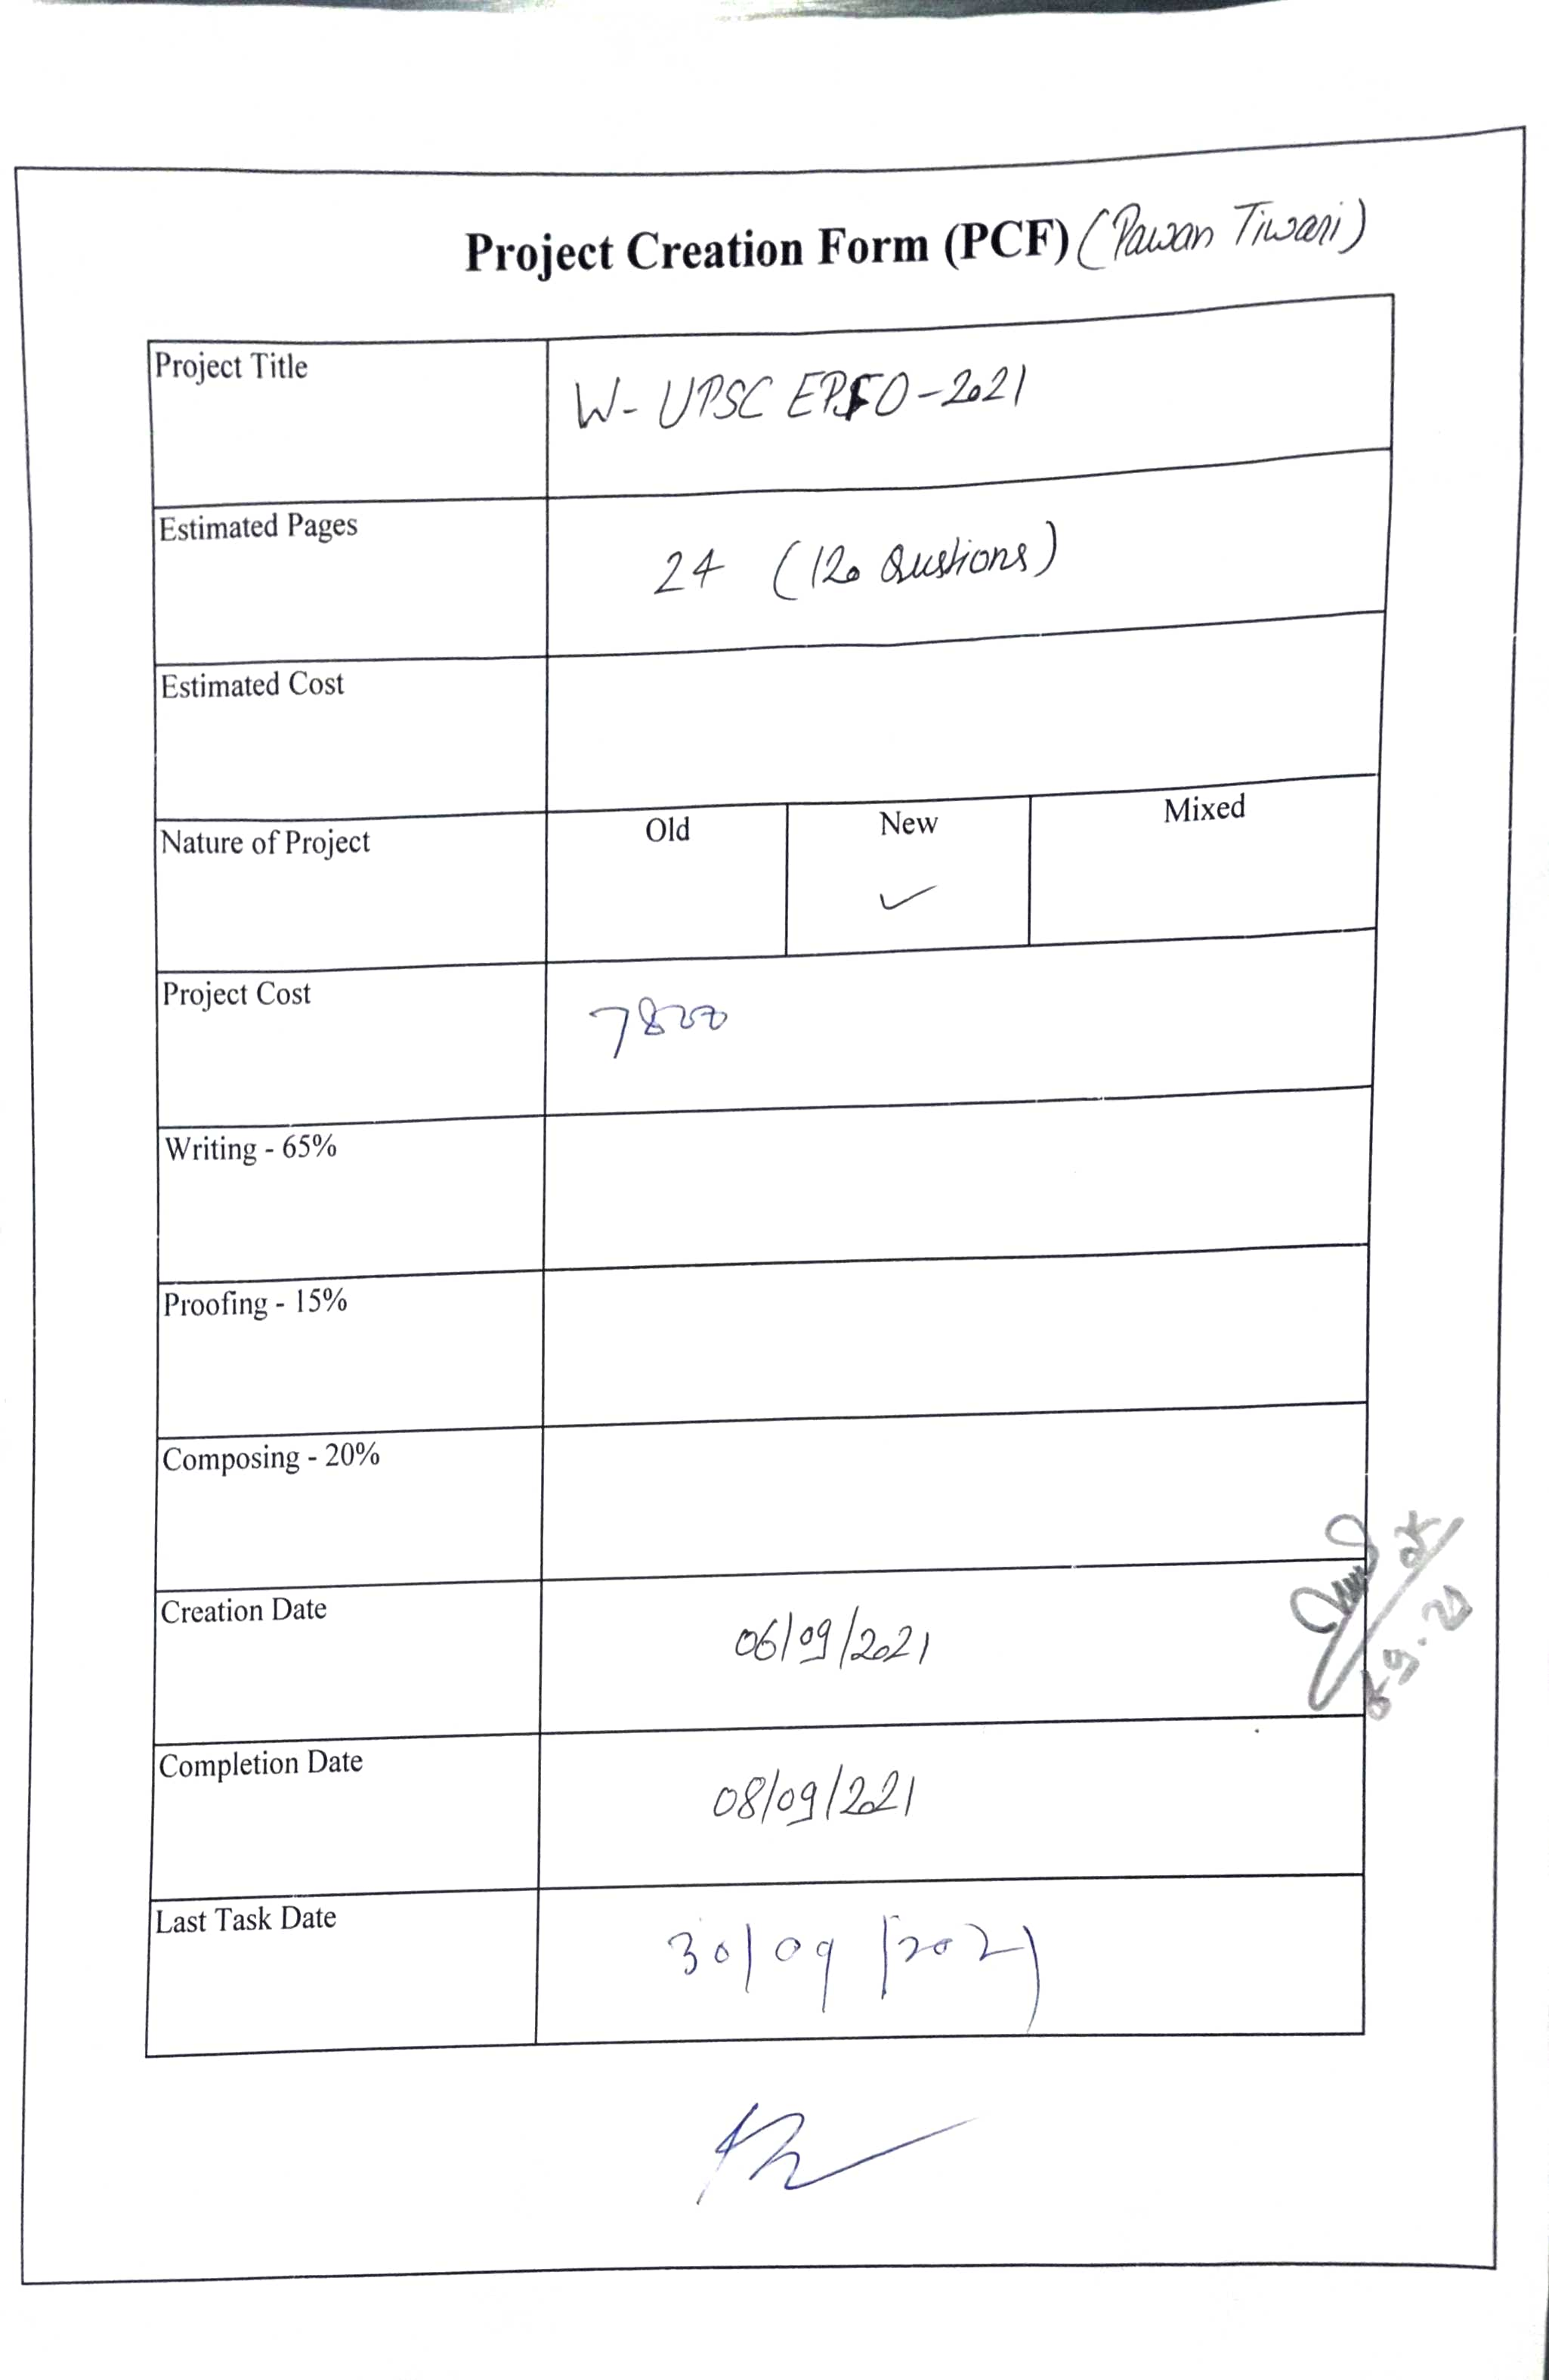 Project Creation Form (PCF) (Pawan Tiwari)
Project Title
W- UPSC EPFO-2021
Estimated Pages
24 (120 Qustions)
Estimated Cost
Nature of Project
Old
New
✓
Mixed
Project Cost
7800
Writing - 65%
Proofing - 15%
Composing - 20%
Creation Date
06/09/2021
Completion Date
08/09/2021
Last Task Date
30/09/2021